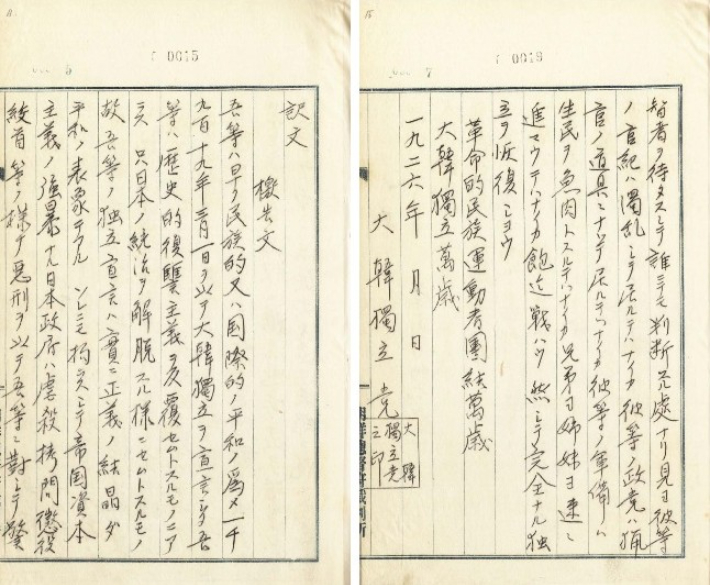 0015
5
訳文
檄告文
吾等ハ早ク民族的又ハ国際的ノ平和ノ為メ一千
九百十九年三月一日ヲ以テ大韓獨立ヲ宣言シタ吾
等ハ歴史的復讐主義ヲ反覆セムトスルモノニア
ラス只日本ノ統治ヲ解脱スル様ニセムトスルモノ
故吾等ノ独立宣言ハ實ニ正義ノ結晶ダ
平和ノ表象テアル ソレニモ拘ラスシテ帝国資本
主義ノ強暴ナル日本政府ハ虐殺拷問懲役
絞首等ノ様ナ悪刑ヲ以テ吾等ニ對シテ驚
0019
7
智者ヲ待タスシテ誰ニテモ判断スル處ナリ見ヨ彼等
ノ官紀ハ濁乱シテ居ルテハナイカ 彼等ノ政党ハ猟
官ノ道具トナッテ居ルテハナイカ彼等ノ軍備ハ
生民ヲ魚肉トスルテハナイカ兄弟ヨ姉妹ヨ速ニ
進マウテハナイカ飽迄戦ハウ然シテ完全ナル独
立ヲ恢復シヨウ
革命的民族運動者團結萬歳
大韓獨立萬歳
一九二六年 月 日
大韓獨立党
大韓
獨立党
之印